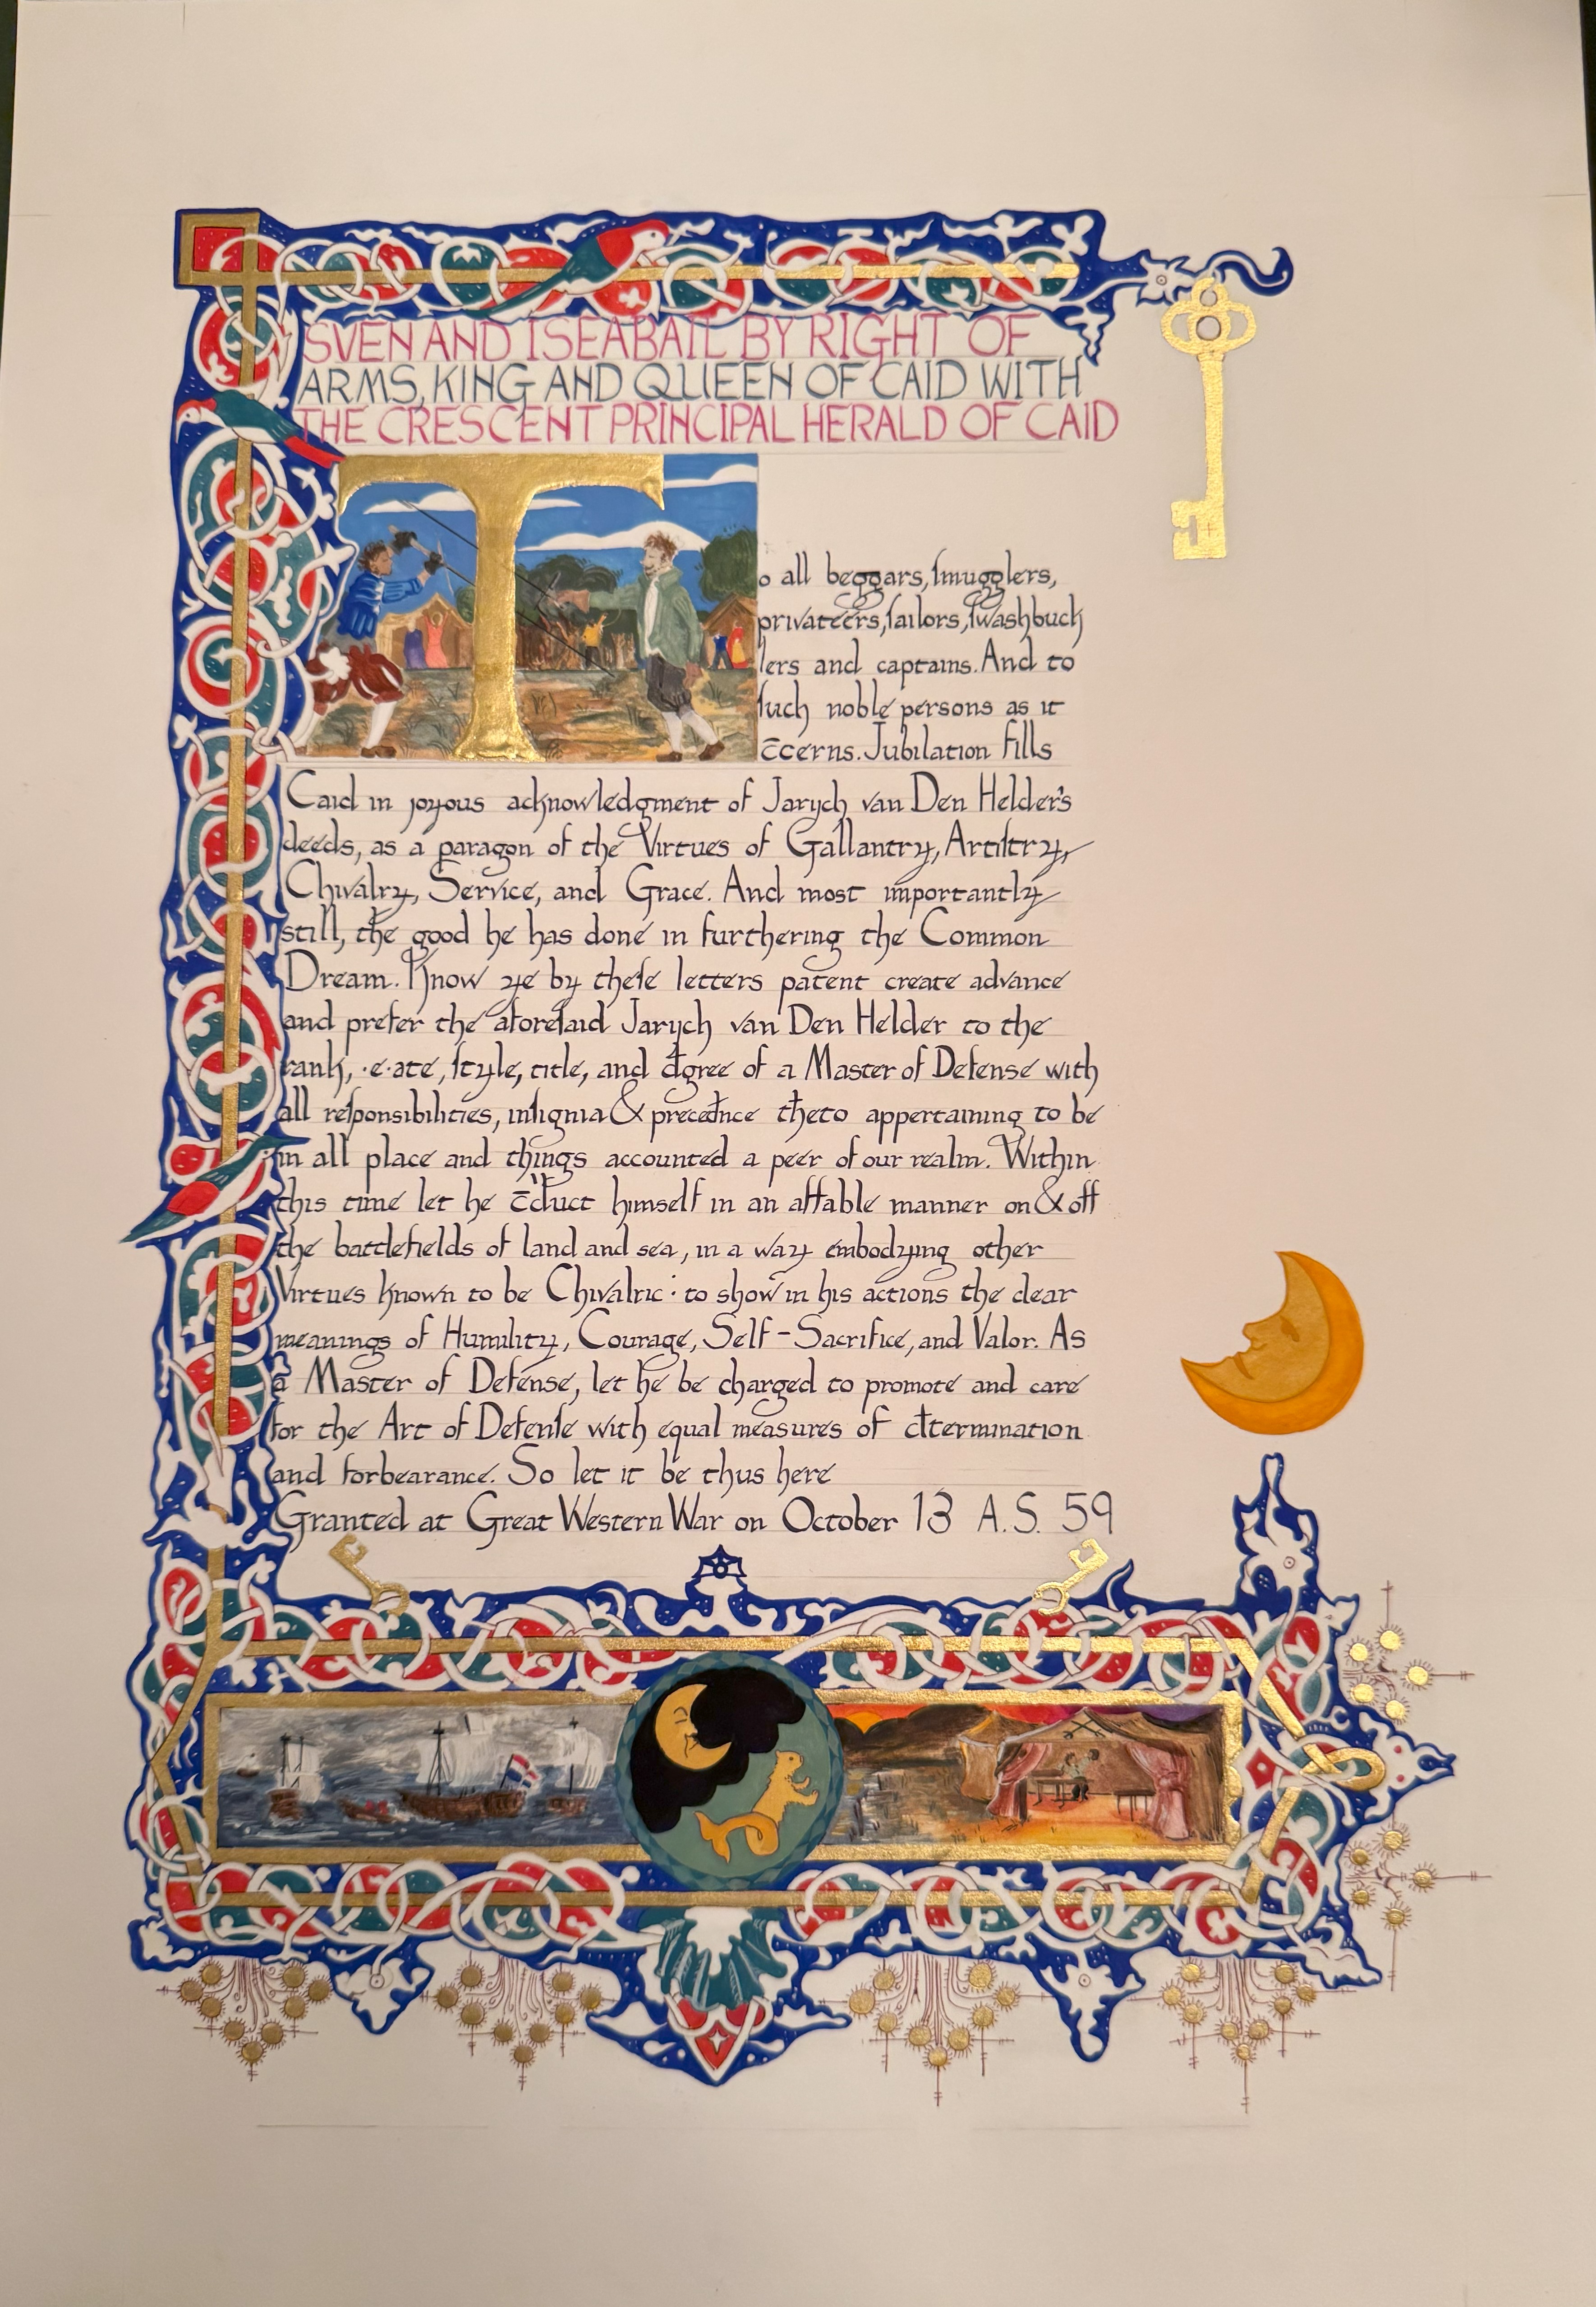 SVEN AND ISEABAIL BY RIGHT OF
ARMS, KING AND QUEEN OF CAID WITH
THE CRESCENT PRINCIPAL HERALD OF CAID
To all beggars, ſmugglers,
privateers, ſailors, ſwashbuck
lers and captains. And to
ſuch noble persons as it
c̄cerns. Jubilation fills
Caid in joyous acknowledgment of Jarych van Den Helder's
deeds, as a paragon of the Virtues of Gallantry, Artiſtry,
Chivalry, Service, and Grace. And most importantly
still, the good he has done in furthering the Common
Dream. Know ye by theſe letters patent create advance
and prefer the aforeſaid Jarych van Den Helder to the
rank, ·e·ate, ſtyle, title, and đgree of a Master of Defense with
all reſponsibilities, inſignia & preceđnce theto appertaining to be
in all place and things accounted a peer of our realm. Within
this time let he c̄đuct himself in an affable manner on & off
the battlefields of land and sea, in a way embodying other
Virtues known to be Chivalric: to show in his actions the clear
meanings of Humility, Courage, Self-Sacrifice, and Valor. As
a Master of Defense, let he be charged to promote and care
for the Art of Defenſe with equal measures of đtermination
and forbearance. So let it be thus here
Granted at Great Western War on October 13 A.S. 59